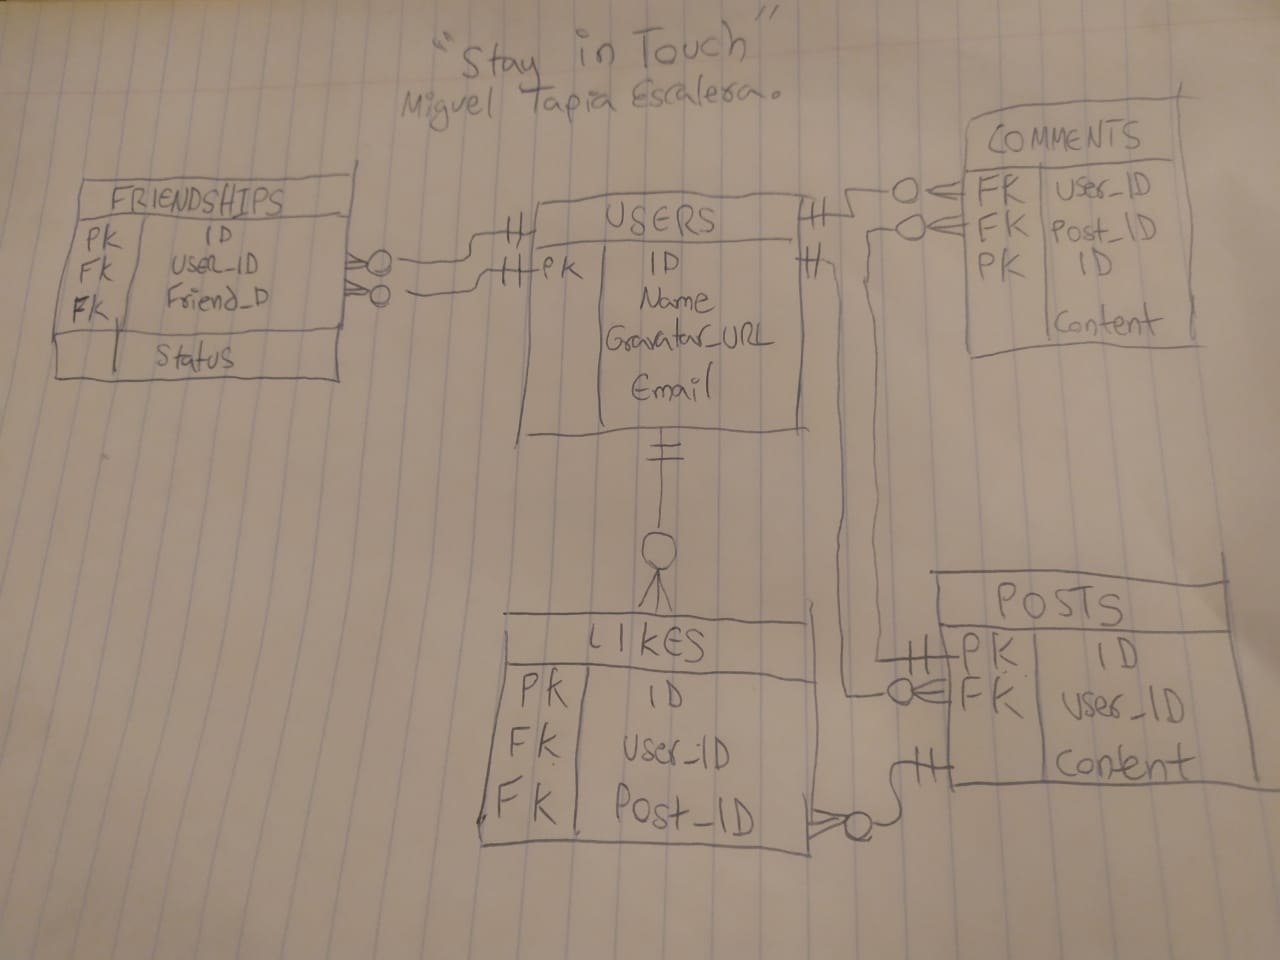 "Stay in Touch"
Miguel Tapia Escalera.
FRIENDSHIPS
PK ID
FK User_ID
FK Friend_D
Status
USERS
PK ID
Name
Gravatar_URL
Email
COMMENTS
FK User_ID
FK Post_ID
PK ID
Content
LIKES
PK ID
FK User_ID
FK Post_ID
POSTS
PK ID
FK User_ID
Content